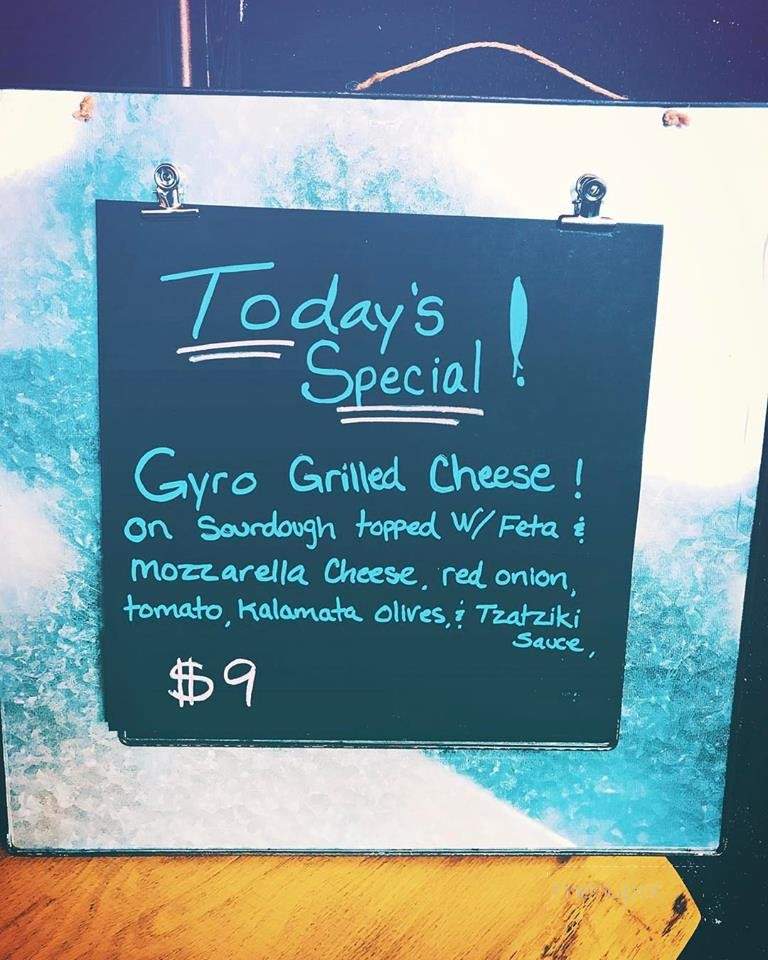 Today's
Special !
Gyro Grilled Cheese !
on Sourdough topped W/ Feta &
Mozzarella Cheese, red onion,
tomato, Kalamata Olives, & Tzatziki
Sauce,
$9